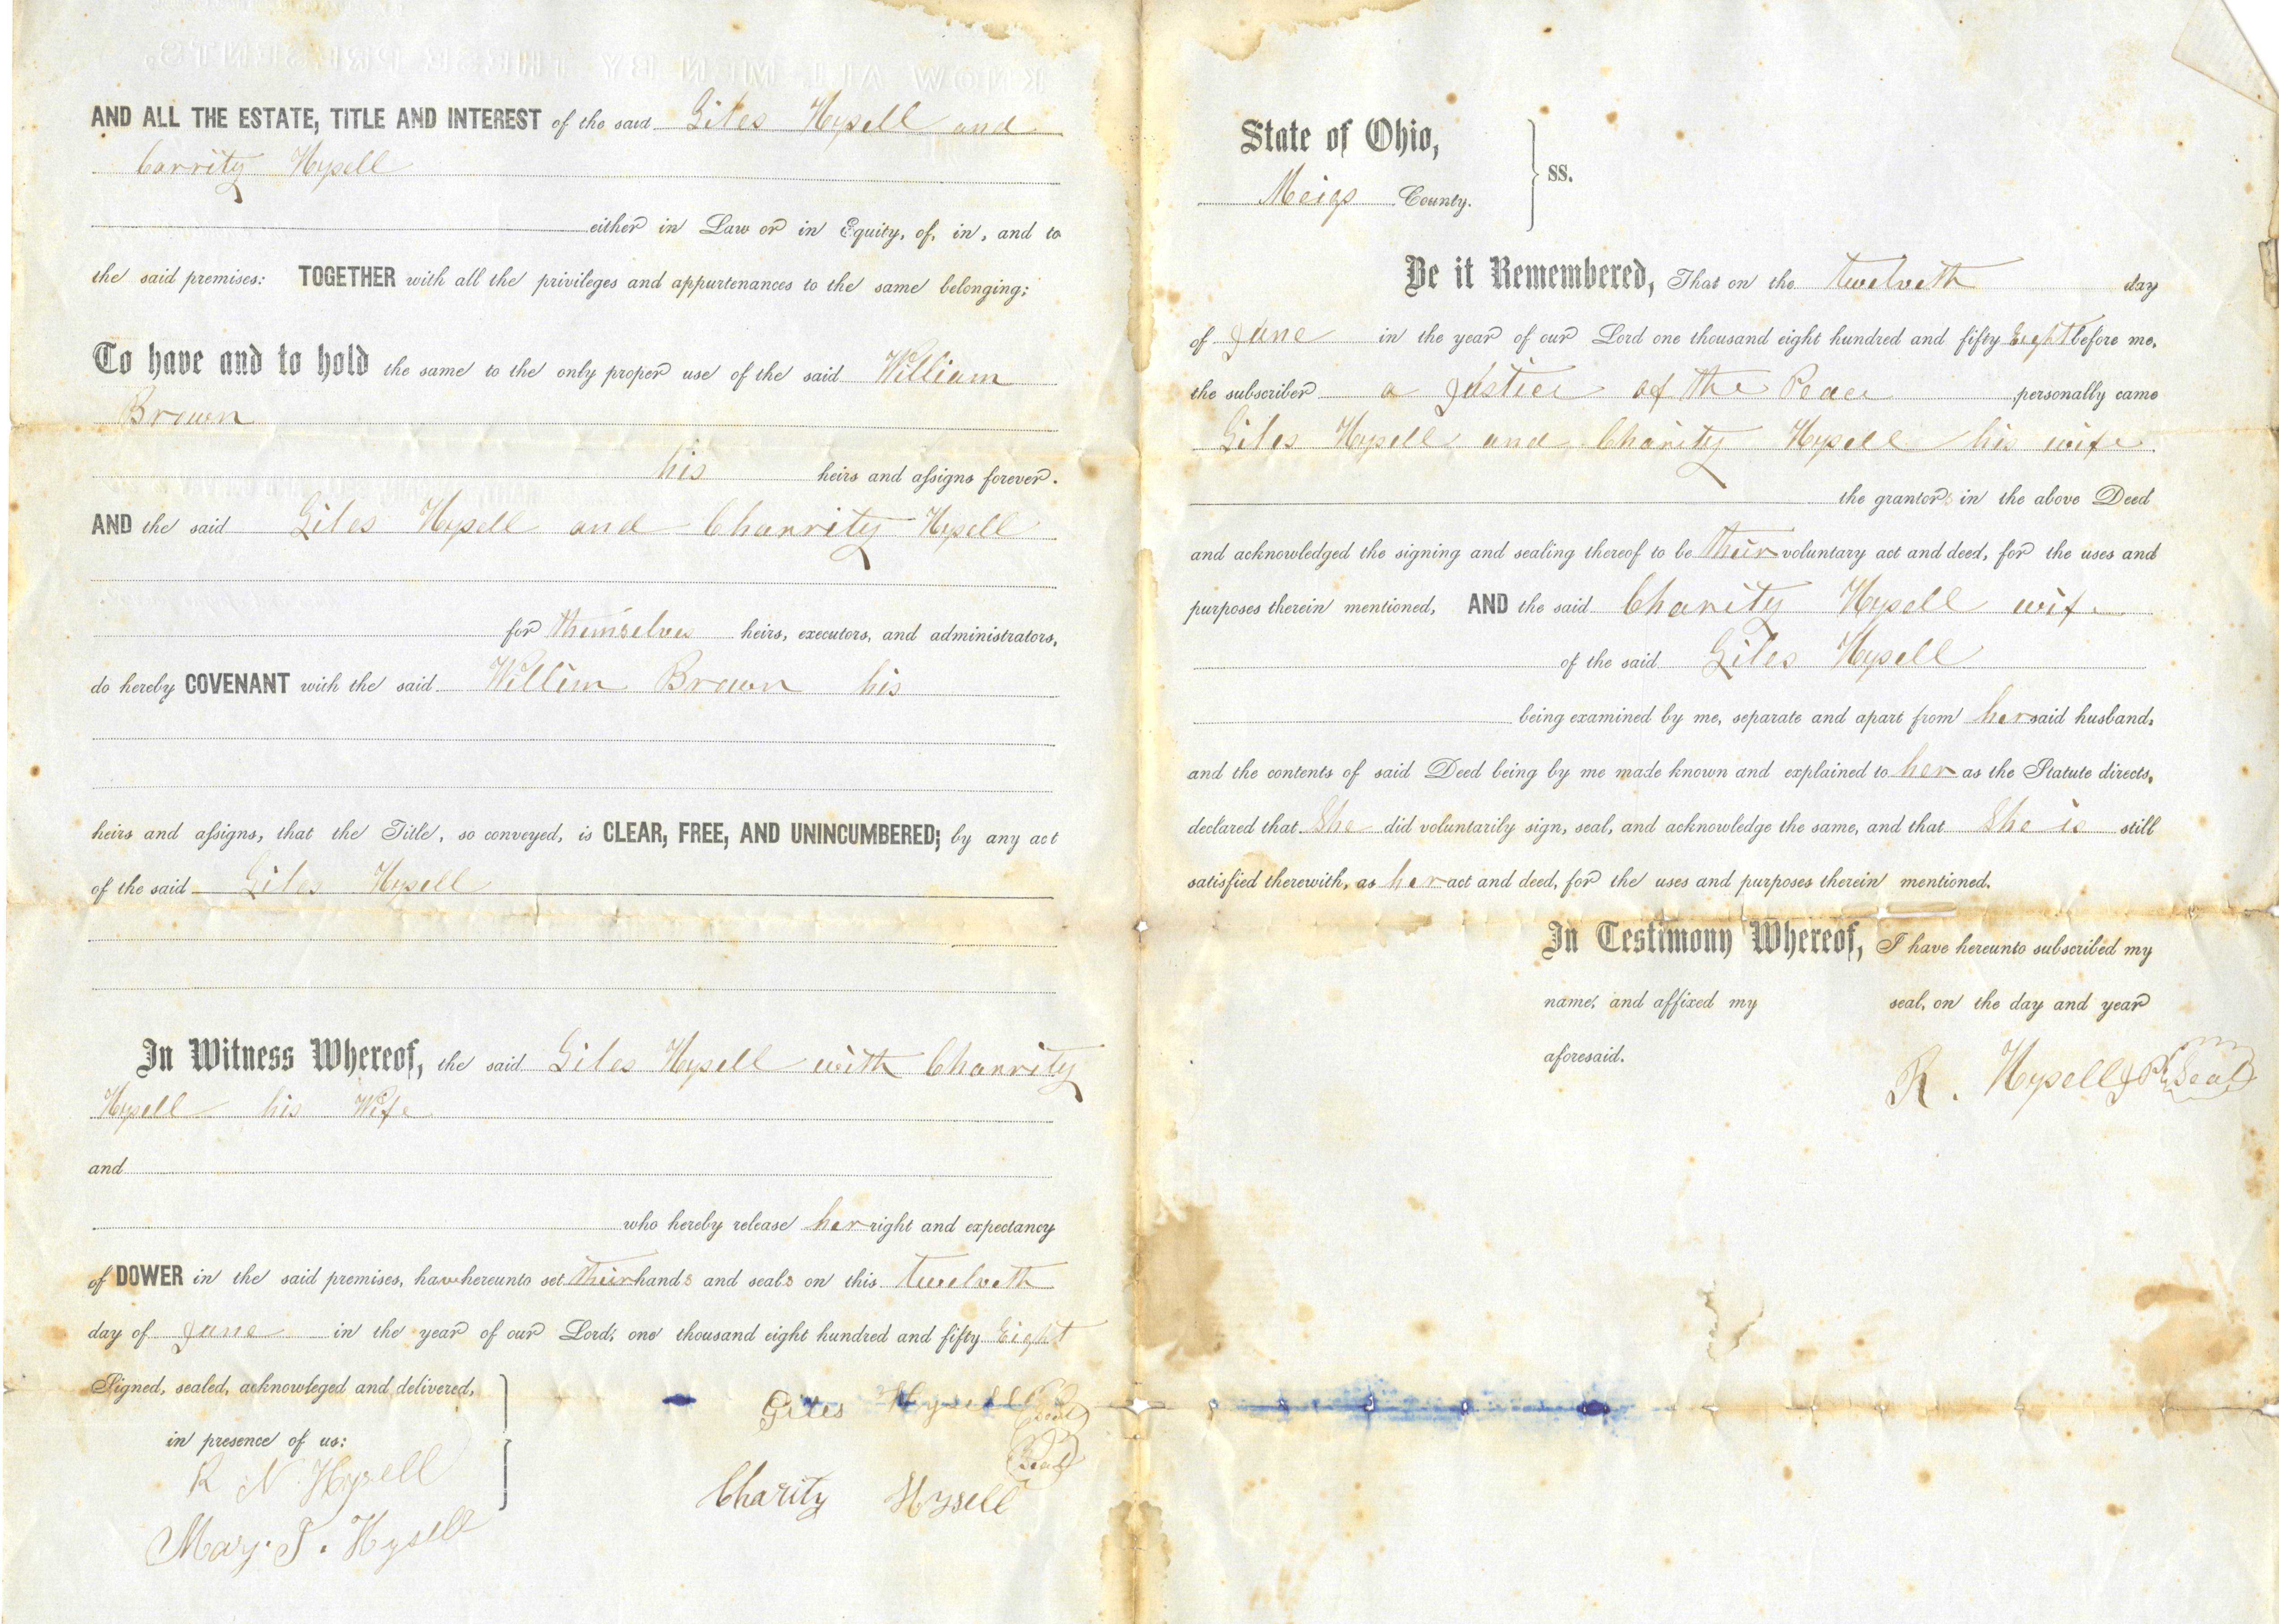 KNOW ALL MEN BY THESE PRESENTS,
AND ALL THE ESTATE, TITLE AND INTEREST of the said Giles Hysell and
Carrity Hysell
either in Law or in Equity, of, in, and to
the said premises: TOGETHER with all the privileges and appurtenances to the same belonging;
To have and to hold the same to the only proper use of the said William
Brown
his heirs and assigns forever.
AND the said Giles Hysell and Charrity Hysell
for themselves heirs, executors, and administrators,
do hereby COVENANT with the said Willim Brown his
heirs and assigns, that the Title, so conveyed, is CLEAR, FREE, AND UNINCUMBERED; by any act
of the said Giles Hysell
In Witness Whereof, the said Giles Hysell with Charrity
Hysell his Wife
and
who hereby release her right and expectancy
of DOWER in the said premises, have hereunto set their hands and seals on this twelveth
day of June in the year of our Lord, one thousand eight hundred and fifty Eight
Signed, sealed, acknowleged and delivered,
in presence of us:
R N Hysell
Mary. J. Hysell
Giles Hysell Seal
Seal
Charity Hysell
State of Ohio,
Meigs County. } ss.
Be it Remembered, That on the twelveth day
of June in the year of our Lord one thousand eight hundred and fifty Eight before me,
the subscriber a Justice of the Peace personally came
Giles Hysell and Charity Hysell his wife
the grantors in the above Deed
and acknowledged the signing and sealing thereof to be their voluntary act and deed, for the uses and
purposes therein mentioned, AND the said Charity Hysell wife
of the said Giles Hysell
being examined by me, separate and apart from her said husband,
and the contents of said Deed being by me made known and explained to her as the Statute directs,
declared that She did voluntarily sign, seal, and acknowledge the same, and that She is still
satisfied therewith, as her act and deed, for the uses and purposes therein mentioned.
In Testimony Whereof, I have hereunto subscribed my
name, and affixed my seal, on the day and year
aforesaid.
R. Hysell J P Seal